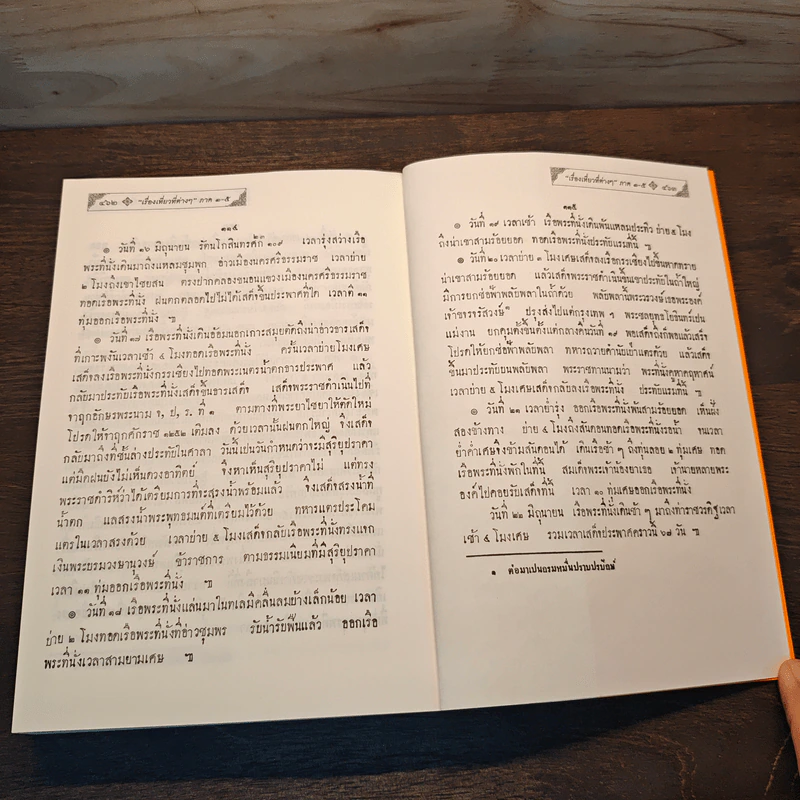 ๔๖๒ "เรื่องเที่ยวที่ต่างๆ" ภาค ๑-๕
๑๑๔
๏ วันที่ ๑๖ มิถุนายน รัตนโกสินทรศก ๑๐๙ เวลารุ่งสว่างเรือ
พระที่นั่งเดินมาถึงแหลมชุมพุก อ่าวเมืองนครศรีธรรมราช เวลาบ่าย
๒ โมงถึงเขาไชยสน ตรงปากคลองขนอนแขวงเมืองนครศรีธรรมราช
ทอดเรือพระที่นั่ง ฝนตกตลอดไปไม่ได้เสด็จขึ้นประพาศที่ใด เวลาดึก ๑๑
ทุ่มออกเรือพระที่นั่ง ๚
๏ วันที่ ๑๗ เรือพระที่นั่งเดินอ้อมนอกเกาะสมุยตัดถึงน่าอ่าวธารเสด็จ
ที่เกาะพงันเวลาเช้า ๔ โมงทอดเรือพระที่นั่ง ครั้นเวลาบ่ายโมงเศษ
เสด็จลงเรือพระที่นั่งกรรเชียงไปทอดพระเนตรน้ำตกธารประพาศ แล้ว
กลับมาประทับเรือพระที่นั่งเสด็จขึ้นธารเสด็จ เสด็จพระราชดำเนินไปที่
จาฤกอักษรพระนาม จ, ป, ร, ที่ ๑ ตามทางที่พระยาไชยาให้ตัดใหม่
โปรดให้จาฤกศักราช ๑๒๕๒ เติมลง ด้วยเวลานั้นฝนตกใหญ่ จึงเสด็จ
กลับมาถึงที่ชั้นล่างประทับในศาลา วันนี้เปนวันกำหนดว่าจะมีสุริยุปราคา
แต่มืดฝนยังไม่เห็นดวงอาทิตย์ จึงหาเห็นสุริยุปราคาไม่ แต่ทรง
พระราชดำริห์ว่าได้เตรียมการที่จะสรงน้ำพร้อมแล้ว จึงเสด็จสรงน้ำที่
น้ำตก แลสรงน้ำพระพุทธมนต์ที่เตรียมไว้ด้วย ทหารแตรประโคม
แตรในเวลาสรงด้วย เวลาบ่าย ๕ โมงเสด็จกลับเรือพระที่นั่งทรงแจก
เงินพระบรมวงษานุวงษ์ ข้าราชการ ตามธรรมเนียมที่มีสุริยุปราคา
เวลา ๑๑ ทุ่มออกเรือพระที่นั่ง ๚
๏ วันที่ ๑๘ เรือพระที่นั่งแล่นมาในทเลมีคลื่นลมบ้างเล็กน้อย เวลา
บ่าย ๒ โมงทอดเรือพระที่นั่งที่อ่าวชุมพร รับน้ำรับฟืนแล้ว ออกเรือ
พระที่นั่งเวลาสามยามเศษ ๚
"เรื่องเที่ยวที่ต่างๆ" ภาค ๑-๕ ๔๖๓
๑๑๕
๏ วันที่ ๑๙ เวลาเช้า เรือพระที่นั่งเดินพ้นแหลมประทิว บ่าย ๕ โมง
ถึงน่าเขาสามร้อยยอด ทอดเรือพระที่นั่งประทับแรมที่นั้น ๚
๏ วันที่ ๒๐ เวลาบ่าย ๓ โมงเศษเสด็จลงเรือกรรเชียงไปขึ้นหาดทราย
น่าเขาสามร้อยยอด แล้วเสด็จพระราชดำเนินขึ้นเขาประทับในถ้ำใหญ่
มีการยกช่อฟ้าพลับพลาในถ้ำด้วย พลับพลานั้นพระวรวงษ์เธอพระองค์
เจ้าขจรจรัสวงษ์ ๑ ปรุงส่งไปแต่กรุงเทพ ๆ พระชลยุทธโยธินทร์เปน
แม่งาน ยกคุมตั้งขึ้นตั้งแต่กลางคืนวันที่ ๑๙ พอเสด็จถึงก็พอแล้วเสร็จ
โปรดให้ยกช่อฟ้าพลับพลา ทหารถวายคำนับเป่าแตรด้วย แล้วเสด็จ
ขึ้นมาประทับบนพลับพลา พระราชทานนามว่า พระที่นั่งคูหาคฤหาศน์
เวลาบ่าย ๕ โมงเศษเสด็จกลับลงเรือพระที่นั่ง ประทับแรมที่นั้น ๚
๏ วันที่ ๒๑ เวลาย่ำรุ่ง ออกเรือพระที่นั่งพ้นสามร้อยยอด เห็นฝั่ง
สองข้างทาง บ่าย ๔ โมงถึงสันดอนทอดเรือพระที่นั่งรอน้ำ จนเวลา
ย่ำค่ำเศษจึงข้ามสันดอนได้ เดินเรือช้า ๆ ถึงทุ่นลอย ๒ ทุ่มเศษ ทอด
เรือพระที่นั่งพักในที่นั้น สมเด็จพระเจ้าน้องยาเธอ เจ้านายหลายพระ
องค์ไปคอยรับเสด็จที่นั้น เวลา ๑๐ ทุ่มเศษออกเรือพระที่นั่ง
วันที่ ๒๒ มิถุนายน เรือพระที่นั่งเดินช้า ๆ มาถึงท่าราชวรดิฐเวลา
เช้า ๔ โมงเศษ รวมเวลาเสด็จประพาศคราวนี้ ๖๗ วัน ๚
๑ ต่อมาเปนกรมหมื่นปราบปรปักษ์